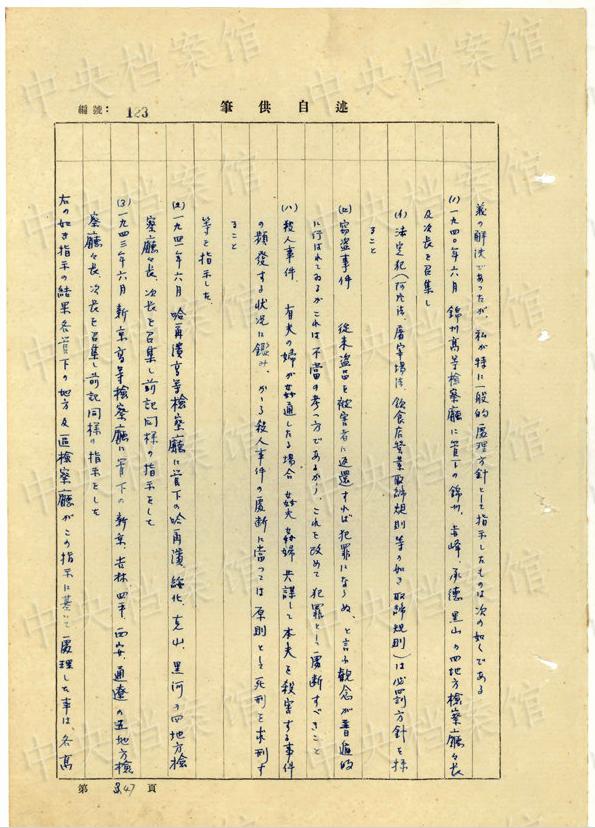 編號：123
筆供自述
義の解決であったが、私が特に一般的処理方針として指示したものは次の如くである
(1) 一九四〇年六月 錦州高等檢察廳に管下の錦州、赤峰、承德、黑山の四地方檢察廳々長
及次長を召集し
(イ) 法定犯(阿片法、屠宰場法、飲食店営業取締規則等の如き取締規則)は必罰方針を採
ること
(ロ) 窃盗事件 従来盗品を被害者に返還すれば犯罪にならぬ、と言ふ観念が普遍的
に行はれてゐるがこれは不當の考へ方であるから、これを改めて犯罪として處断すべきこと
(ハ) 殺人事件、有夫の婦が姦通したる場合 姦夫姦婦共謀して本夫を殺害する事件
の頻發する状況に鑑み、かゝる殺人事件の處断に當っては原則として死刑を求刑す
ること
等を指示した、
(2) 一九四一年六月 哈爾濱高等檢察廳に管下の哈爾濱、綏化、克山、黑河の四地方檢
察廳々長、次長を召集し前記同様の指示をした
(3) 一九四三年六月 新京高等檢察廳に管下の新京、吉林、四平、西安、通遼の五地方檢
察廳々長、次長を召集し前記同様の指示をした
右の如き指示の結果各管下の地方及區檢察廳がこの指示に基いて處理した事は、各高
第 3,47 頁
中央档案馆